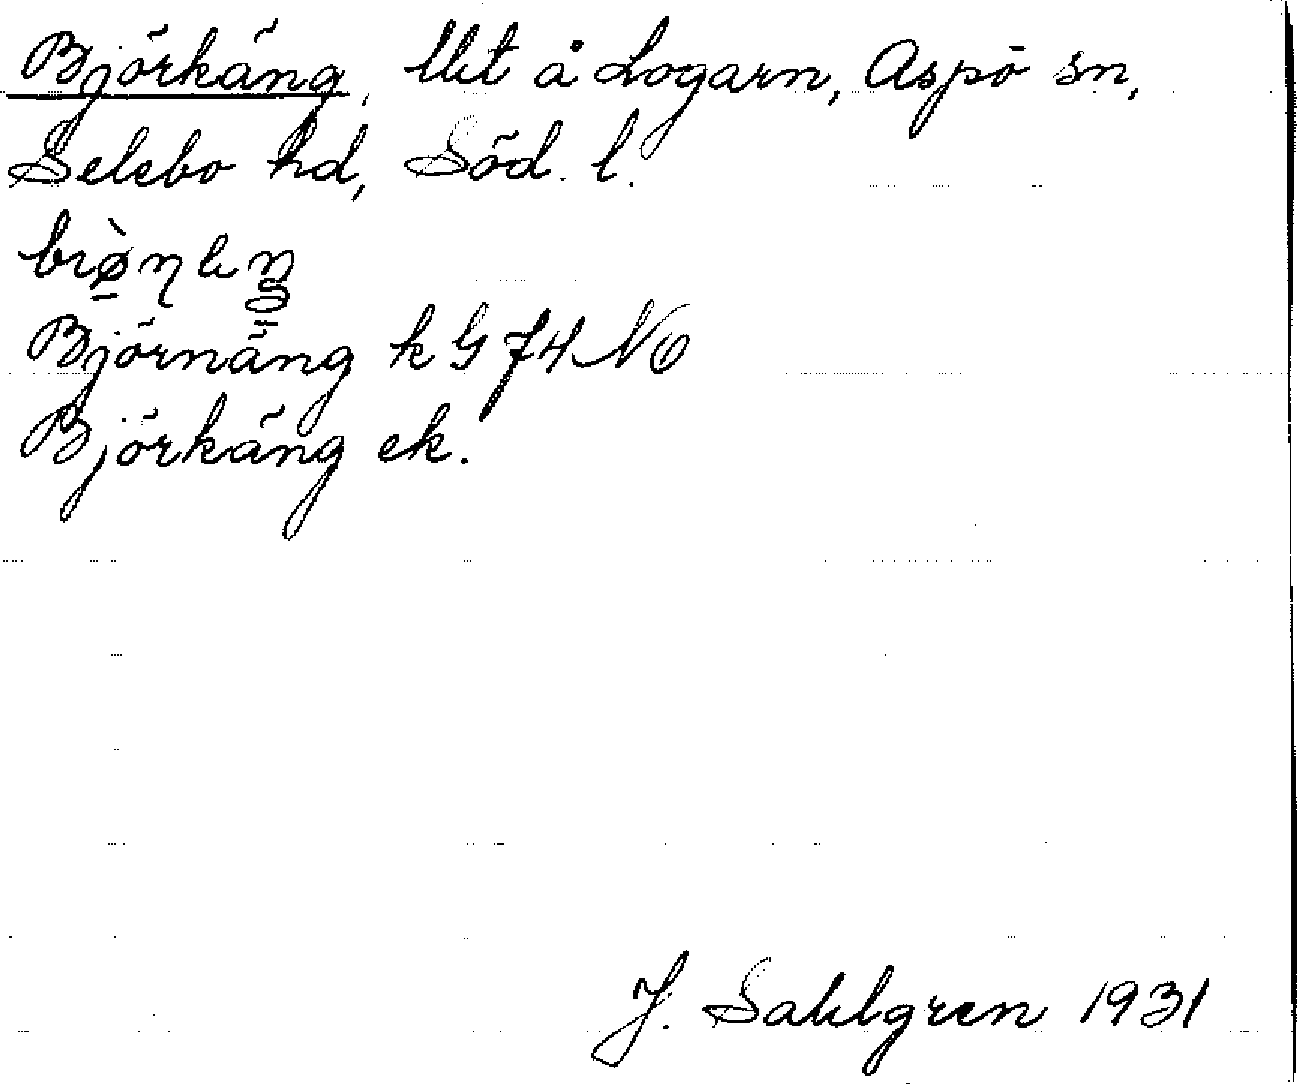 Björkäng, lht å Logarn, Aspö sn,
Selebo hd, Söd. l.
Björnäng k G 74 NO
Björkäng ek.
J. Sahlgren 1931